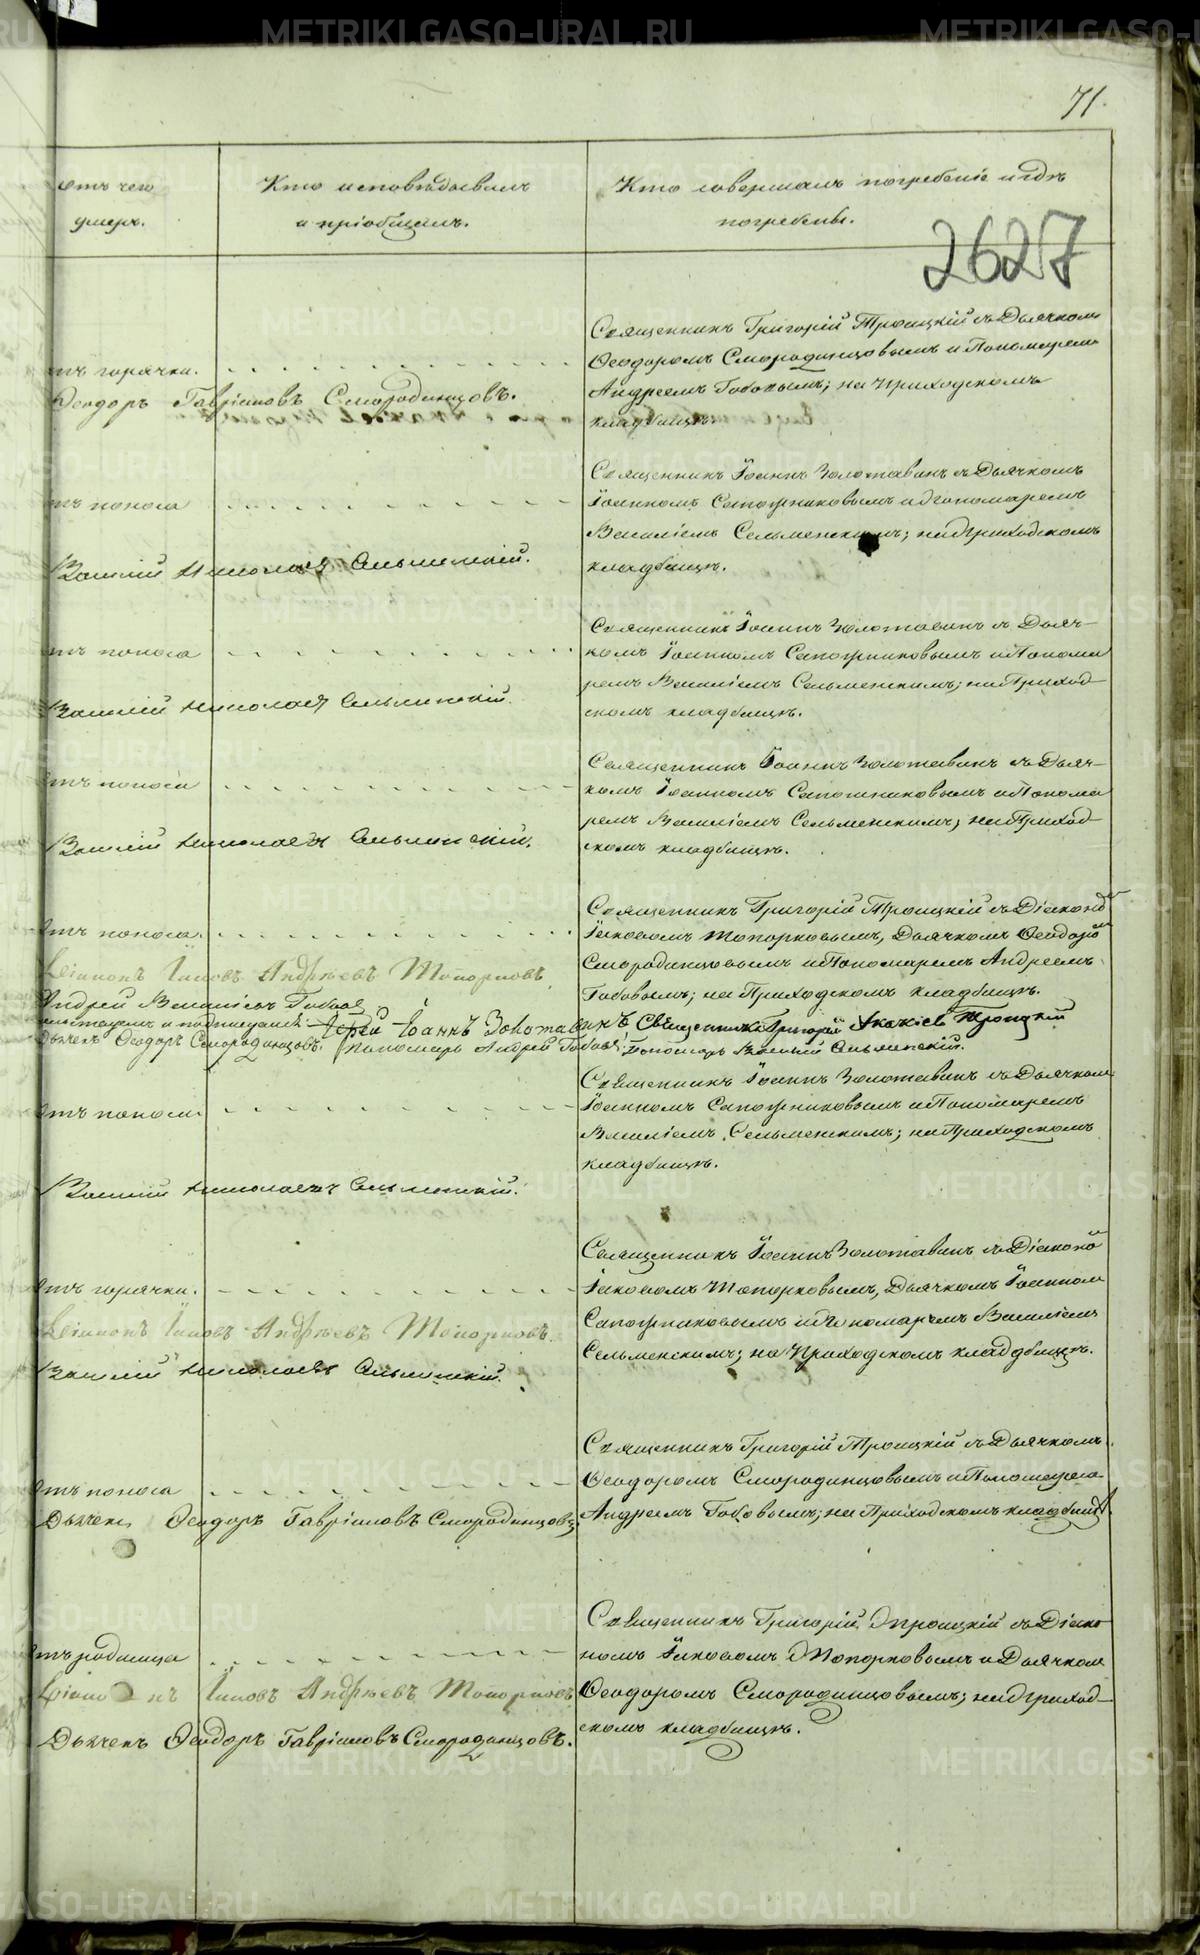 71.
отъ чего
умеръ.
Кто исповѣдывалъ
и пріобщалъ.
Кто совершалъ погребеніе и гдѣ
погребены.
2627
Священникъ Григорій Троицкій съ Дьячкомъ
Ѳеодоромъ Смородинцовымъ и Пономаремъ
тъ горячки.
Андреемъ Гобовымъ; на приходскомъ
Ѳеодоръ Гавріиловъ Смородинцовъ.
кладбищѣ.
Священникъ Іоаннъ Золотавинъ съ Дьячкомъ
тъ поноса
Іоанномъ Сапожниковымъ и пономаремъ
Василіемъ Сельменскимъ; на Приходскомъ
Василій Николаевъ Сельменскій.
кладбищѣ.
Священникъ Іоаннъ Золотавинъ съ Дьяч-
тъ поноса
комъ Іоанномъ Сапожниковымъ и Понома
ремъ Василіемъ Сельменскимъ; на Приход-
Василій Николаевъ Сельменскій.
скомъ кладбищѣ.
Священникъ Іоаннъ Золотавинъ съ Дьяч-
тъ поноса
комъ Іоанномъ Сапожниковымъ и Понома
ремъ Василіемъ Сельменскимъ; на Приход-
Василій Николаевъ Сельменскій.
скомъ кладбищѣ.
Священникъ Григорій Троицкій съ Діакономъ
Отъ поноса.
Іаковомъ Топорковымъ, Дьячкомъ Ѳеодоромъ
Смородинцовымъ и Пономаремъ Андреемъ
Діаконъ Іаковъ Андреевъ Топорковъ
Гобовымъ; на Приходскомъ кладбищѣ.
Андрей Василіевъ Гобовъ
Іерей Іоаннъ Золотавинъ, Священникъ Григорій Акакіевъ Троицкій
Дьячекъ Ѳеодоръ Смородинцовъ. Пономарь Андрей Гобовъ, Пономарь Василій Сельменскій.
Священникъ Іоаннъ Золотавинъ съ Дьячкомъ
Отъ поноса.
Іоанномъ Сапожниковымъ и Пономаремъ
Василіемъ Сельменскимъ; на Приходскомъ
кладбищѣ.
Василій Николаевъ Сельменскій.
Священникъ Іоаннъ Золотавинъ съ Діакономъ
Отъ горячки.
Іаковомъ Топорковымъ, Дьячкомъ Іоанномъ
Діаконъ Іаковъ Андреевъ Топорковъ.
Сапожниковымъ и Пономаремъ Василіемъ
Сельменскимъ; на Приходскомъ кладбищѣ.
Василій Николаевъ Сельменскій.
Священникъ Григорій Троицкій съ Дьячкомъ
Отъ поноса
Ѳеодоромъ Смородинцовымъ и Пономаремъ
Дьячекъ Ѳеодоръ Гавріиловъ Смородинцовъ.
Андреемъ Гобовымъ; на Приходскомъ кладбищѣ.
Священникъ Григорій Троицкій съ Діако
тъ родимца
номъ Іаковомъ Топорковымъ и Дьячкомъ
Діаконъ Іаковъ Андреевъ Топорковъ
Ѳеодоромъ Смородинцовымъ; на Приход-
Дьячекъ Ѳеодоръ Гавріиловъ Смородинцовъ.
скомъ кладбищѣ.
METRIKI.GASO-URAL.RU